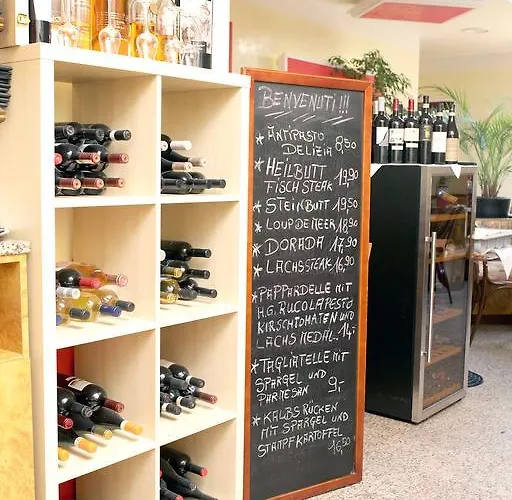 BENVENUTI!!!
* ANTIPASTO
DELIZIA 8,50
* HEILBUTT
FISCHSTEAK 19,90
* STEINBUTT 19,50
* LOUP DE MEER 18,90
* DORADA 17,90
* LACHSSTEAK 16,90
* PAPPARDELLE MIT
H.G. RUCOLAPESTO
KIRSCHTOMATEN UND
LACHSMEDAL. 14,-
* TAGLIATELLE MIT
SPARGEL UND
PARMESAN 9,-
* KALBSRÜCKEN
MIT SPARGEL UND
STAMPFKARTOFFEL
16,50